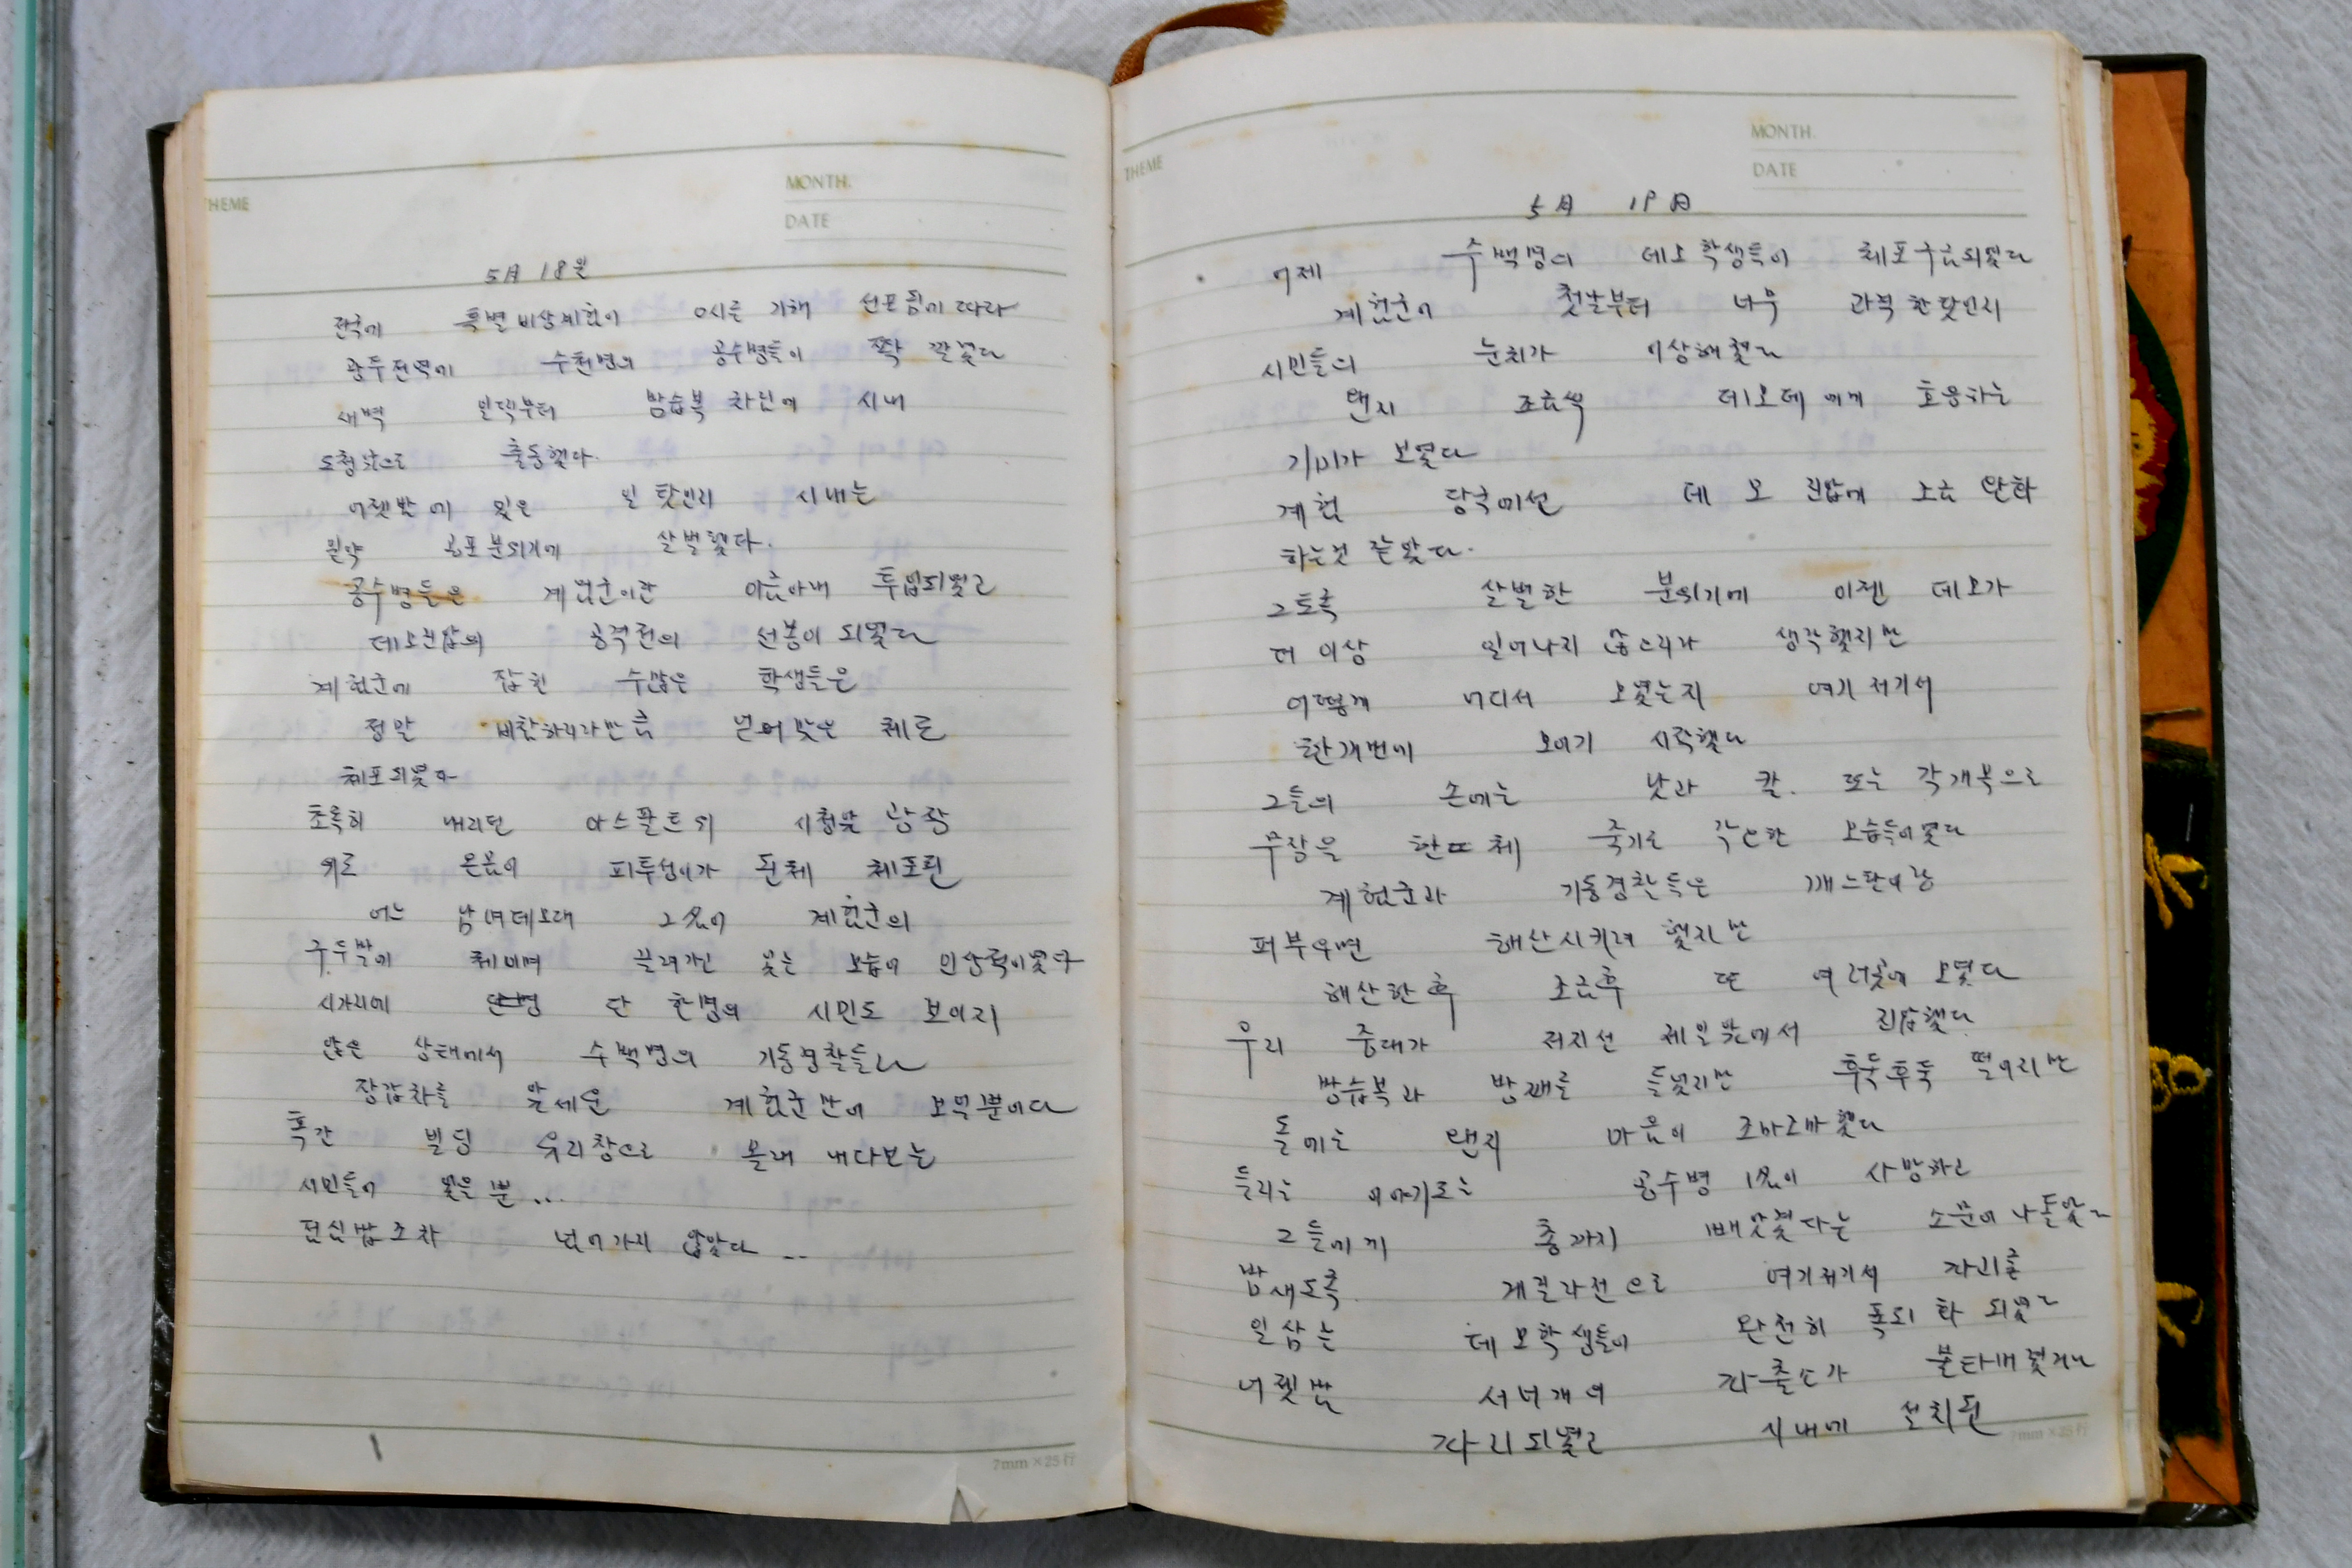 THEME
MONTH.
DATE
5月 18일
전국에 특별비상계엄이 0시를 기해 선포됨에 따라
광주전역에 수천명의 공수병들이 쫙 깔렸다
새벽 일찍부터 방습복 차림에 시내
도청앞으로 출동했다.
어젯밤에 있은 일 탓인지 시내는
공포분위기에 살벌했다.
공수병들은 계엄군이란 이름아래 투입되었고
데모진압의 공격전의 선봉이 되었다
계엄군에 잡힌 수많은 학생들은
정말 비참하리라만큼 얻어맞은 체로
체포되었다
초록히 내리던 아스팔트위 시청앞 광장
위로 온몸이 피투성이가 된체 체포된
어느 남녀데모대 그 的이 계엄군의
구두발에 체이며 끌려가고 있는 모습이 인상적이었다
시가지에 단 한명의 시민도 보이지
않은 상태에서 수백명의 기동경찰들과
장갑차를 앞세운 계엄군만이 보일뿐이다
폭간 빌딩 유리창으로 몰래 내다보는
시민들이 있을 뿐...
점심밥조차 넘어가지 않았다...
7mm×25行
THEME
MONTH.
DATE
5月 19日
어제 수백명의 데모학생들이 체포구금되었다
계엄군이 첫날부터 너무 과격한 탓인지
시민들의 눈치가 이상해졌고
왠지 조금씩 데모대에게 호응하는
기미가 보였다
계엄 당국에선 데모 진압에 조금 완화
하는것 같았다.
그토록 살벌한 분위기에 이젠 데모가
더 이상 일어나지 않으리라 생각했지만
어떻게 어디서 모였는지 여기저기서
한개번에 모이기 시작했다
그들의 손에는 낫과 칼. 또는 각개목으로
무장을 한 체 죽기로 각오한 모습들이었다
계엄군과 기동경찰들은 깨스탄이랑
퍼부우면 해산시키려 했지만
해산한후 조금후 또 여러곳에 모였다
우리 중대가 저지선 제일앞에서 진압했다.
방습복과 방패를 들었지만 후둑후둑 떨어지는
돌에는 왠지 마음이 조마조마했다
들리는 이야기로는 공수병 1名이 사망하고
그들에게 총까지 빼앗겼다는 소문이 나돌았고
밤새도록 게릴라전으로 여기저기서 파괴를
일삼는 데모학생들이 완전히 폭도화 되었고
어젯밤 서너개의 파출소가 불타버렸거나
파괴되었고 시내에 설치된
7mm×25行